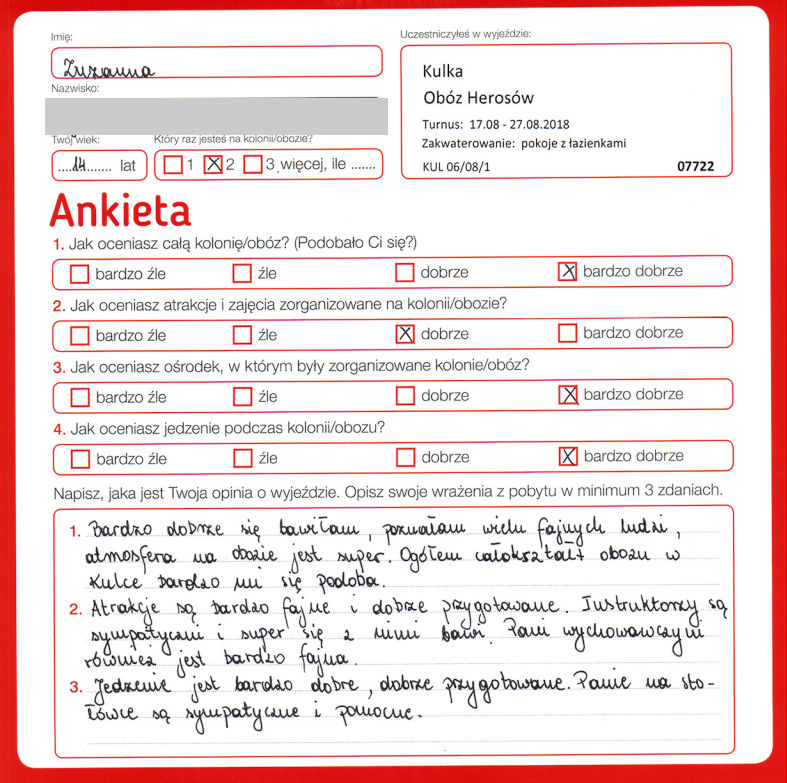 Imię:
Zuzanna
Nazwisko:
Twój wiek:
14 lat
Który raz jesteś na kolonii/obozie?
1 2 3, więcej, ile .......
Uczestniczyłeś w wyjeździe:
Kulka
Obóz Herosów
Turnus: 17.08 - 27.08.2018
Zakwaterowanie: pokoje z łazienkami
KUL 06/08/1 07722
Ankieta
1. Jak oceniasz całą kolonię/obóz? (Podobało Ci się?)
bardzo źle źle dobrze bardzo dobrze
2. Jak oceniasz atrakcje i zajęcia zorganizowane na kolonii/obozie?
bardzo źle źle dobrze bardzo dobrze
3. Jak oceniasz ośrodek, w którym były zorganizowane kolonie/obóz?
bardzo źle źle dobrze bardzo dobrze
4. Jak oceniasz jedzenie podczas kolonii/obozu?
bardzo źle źle dobrze bardzo dobrze
Napisz, jaka jest Twoja opinia o wyjeździe. Opisz swoje wrażenia z pobytu w minimum 3 zdaniach.
1. Bardzo dobrze się bawiłam, poznałam wielu fajnych ludzi,
atmosfera na obozie jest super. Ogółem całokształt obozu w
Kulce bardzo mi się podoba.
2. Atrakcje są bardzo fajne i dobrze przygotowane. Instruktorzy są
sympatyczni i super się z nimi bawi. Pani wychowawczyni
również jest bardzo fajna.
3. Jedzenie jest bardzo dobre, dobrze przygotowane. Panie na sto-
łówce są sympatyczne i pomocne.